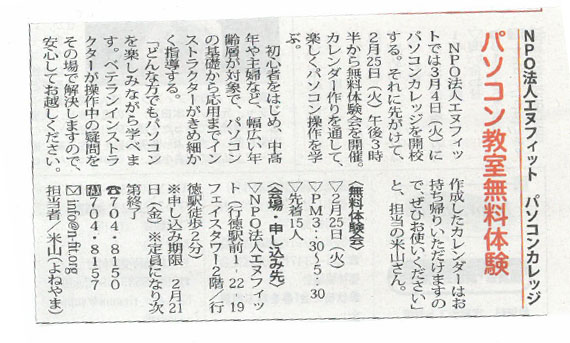 NPO法人エヌフィット　パソコンカレッジ
パソコン教室無料体験
　NPO法人エヌフィッ
トでは3月4日（火）に
パソコンカレッジを開校
する。それに先がけて、
2月25日（火）午後3時
半から無料体験会を開催。
カレンダー作りを通して、
楽しくパソコン操作を学
ぶ。
　初心者をはじめ、中高
年や主婦など、幅広い年
齢層が対象で、パソコン
の基礎から応用までイン
ストラクターがきめ細か
く指導する。
「どんな方でもパソコン
を楽しみながら学べま
す。ベテランインストラ
クターが操作中の疑問を
その場で解決しますので、
安心してお越しください。
作成したカレンダーはお
持ち帰りいただけますの
で、ぜひお使いください」
と、担当の米山さん。
〈無料体験会〉
▽2月25日（火）
▽PM3：30〜5：30
▽先着15人
〈会場・申し込み先〉
▽NPO法人エヌフィッ
ト（行徳駅前1‐22‐19
フェイスタワー2階／行
徳駅徒歩2分）
※申し込み期限　2月21
日（金）※定員になり次
第終了
☎704・8150
FAX704・8157
✉info@n-fit.org
担当者／米山（よねやま）